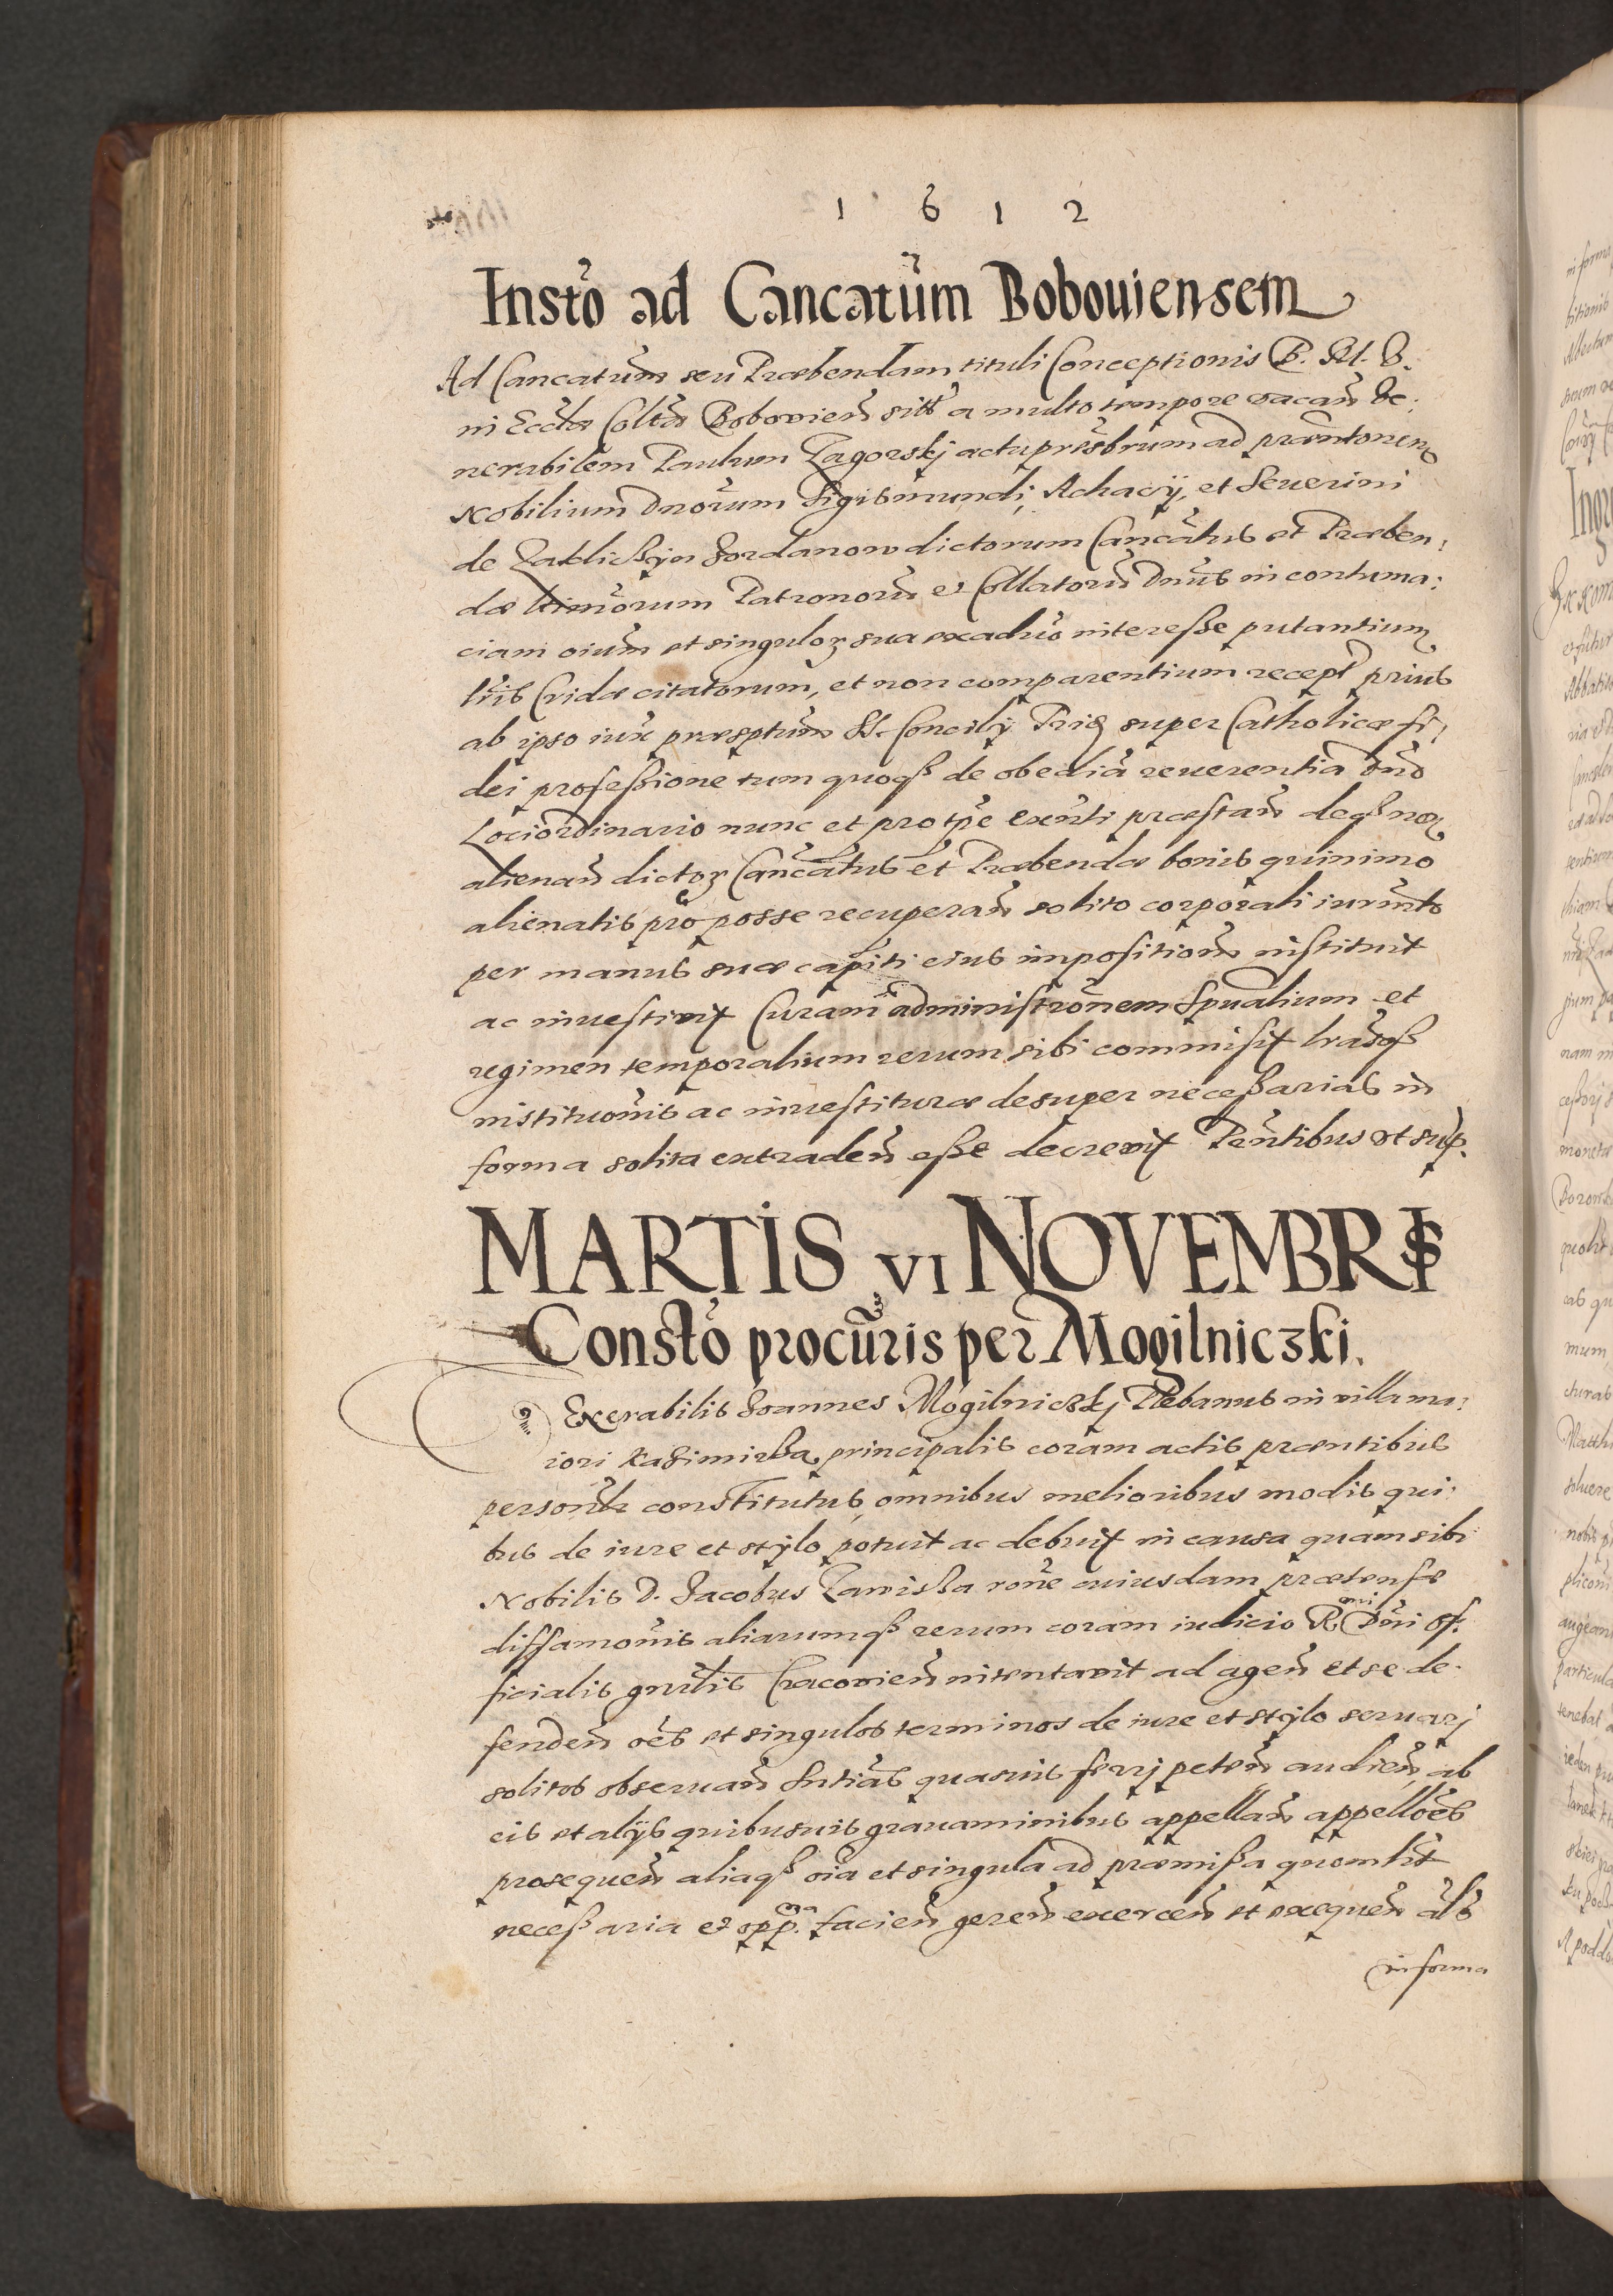 1 6 1 2
Insto ad Cancatum Bobouiensem
Ad Cancatum seu Præbendam tituli Conceptionis B. M. V.
in Eccla Colta Bobovien sitt a multo tempore vacan Ve:
nerabilem Paulum Zagorskj actu presbrum ad præntonem
Nobilium Dnorum Sigismundi, Achacij, et Seuerini
de Zakliczyn Jordanow dictorum Cancatus et Præben:
dæ Patronorū et Collatorū Dnus in contuma:
ciam oium et singulor sua ex aduo interesse putantium
lris Cridæ citatorum, et non comparentium recept prius
ab ipso iux præsptum S. Concilij Trid super Catholicæ fi:
dei professione tum quoqꝫ de obedia reuerentia Dno
Loci ordinario nunc et pro tpe exnti præstan deqꝫ non
alienan dictor Cancatus et Præbendæ bonis quinimo
alienatis pro posse recuperan solito corporali iurmto
per manus suæ capiti eius impositionē instituit
ac inuestivit Curam administronem Spualium et
regimen temporalium rerum sibi commisit lrasqꝫ
instituonis ac inuestituræ desuper necessarias in
forma solita extraden esse decrevit Pentibus vt sup.
MARTIS VI NOVEMBRIS
Consto procuris per Mogilniczki.
Venerabilis Joannes Mogilniczkj Plebanus in villa ma:
iori Kasimirza principalis coram actis præntibus
personlr constitutus, omnibus melioribus modis qui:
bus de iure et stylo potuit ac debuit in causa quam sibi
Nobilis D. Jacobus Zawisza rone cuiusdam prætensæ
diffamonis aliarumqꝫ rerum coram iudicio R. mi Dni Of:
ficialis gnrlis Cracovien intentavit ad agen et se de:
fenden oes et singulos terminos de iure et stylo seruarj
solitos obseruan Sntias quasuis ferrj peten audien, ab
eis et alijs quibusuis grauaminibus appellan appelloes
prosequen aliaqꝫ oia et singula ad præmissa quomlit
necessaria et opp. na facien geren exercen et exequen als
in forma